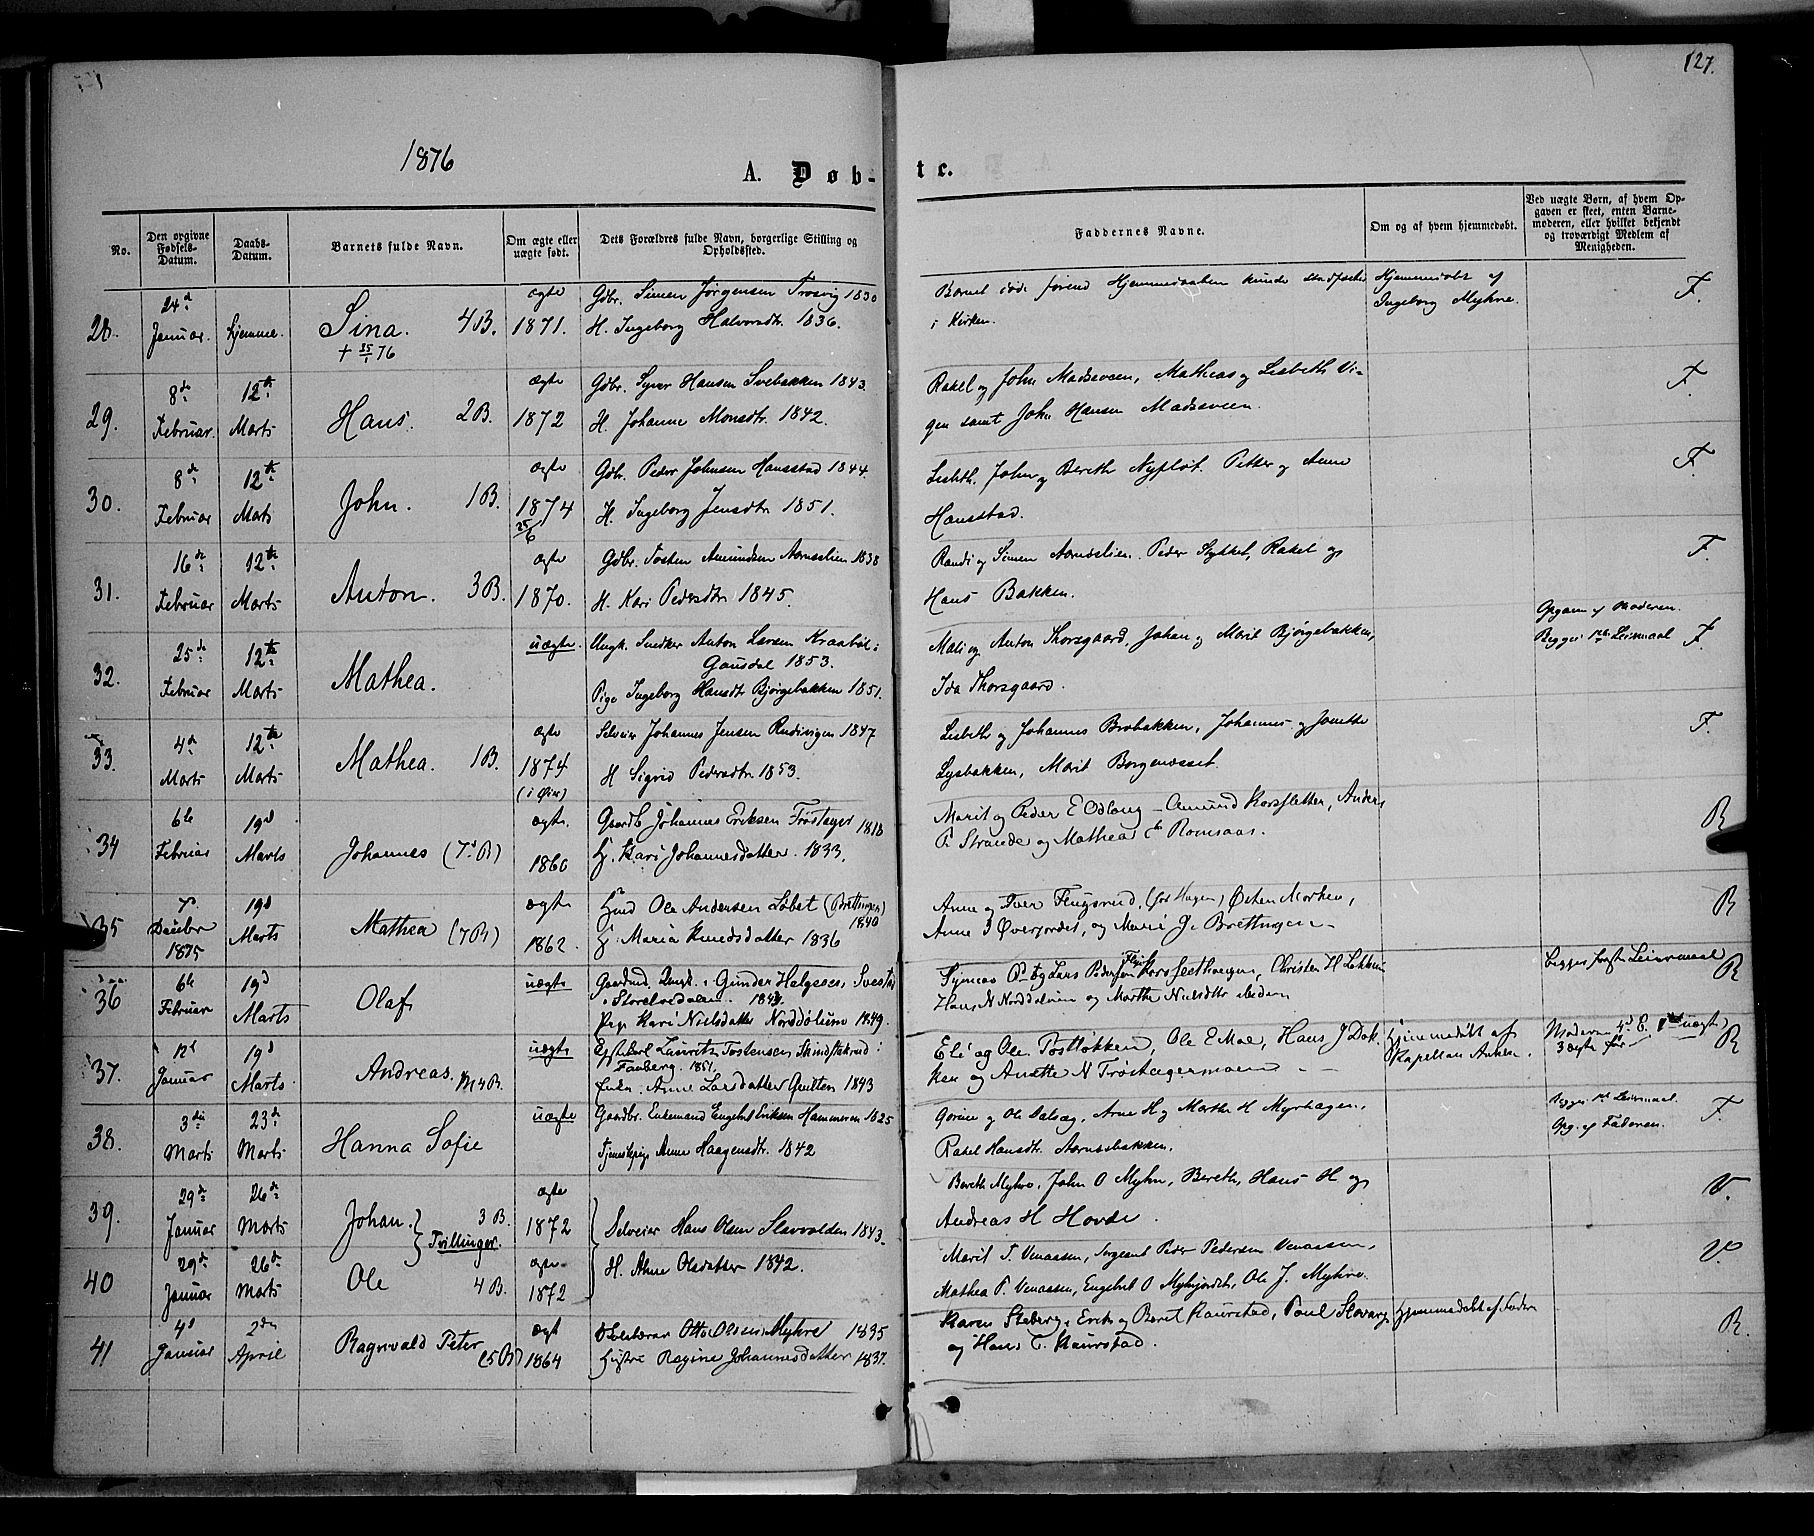 127.
1876
A. Døb-
te.
No.
Den opgivne Fødsels-Datum.
Daabs-Datum.
Barnets fulde Navn.
Om ægte eller uægte født.
Dets Forældres fulde Navn, borgerlige Stilling og Opholdssted.
Faddernes Navne.
Om og af hvem hjemmedøbt.
Ved uægte Børn, af hvem Opgaven er skeet, enten Barnemoderen, eller hvilket bekjendt og troværdigt Medlem af Menigheden.
28.
24d Januar.
hjemme.
Sina. 4B.
+ 25/1 76
ægte 1871.
Gdbr. Simen Jørgensen Trosvig 1830
H. Ingeborg Halvorsdtr. 1836.
Barnet døde førend Hjemmedaaben kunde stadfæstes
i Kirken.
Hjemmedøbt af
Ingeborg Myhre.
F.
29.
8de Februar.
12te Marts
Hans. 2B.
ægte 1872
Gdbr. Syver Hansen Svebakken 1843.
H. Johanne Monsdtr. 1842.
Rakel og John Madsveen, Mathias og Lisbeth Vi-
gen samt John Hansen Madsveen.
F.
30.
8de Februar
12te Marts
John. 1B.
ægte 1874 25/6
Gdbr. Peder Johnsen Hansstad 1844.
H. Ingeborg Jensdtr. 1851.
Lisbeth, John og Bereth Nyfløt. Petter og Anne
Hansstad.
F.
31.
16de Februar
12te Marts
Anton. 3B.
ægte 1870.
Gdbr. Tosten Amundsen Aarnslien 1838
H. Kari Pedersdtr. 1845.
Randi og Simen Aarnslien. Peder Stykket, Rakel og
Hans Bakken.
F.
32.
25de Februar
12te Marts
Mathea.
uægte.
Ungk. Snedker Anton Larsen Kraabøl i
Gausdal 1853.
Pige Ingeborg Hansdtr Bjørgebakken 1851.
Mali og Anton Thorsgaard, Johan og Marit Bjørgebakken,
Ida Thorsgaard.
Opgave af Moderen.
Begges 1ste Leiermaal
F.
33.
4de Marts
12te Marts
Mathea. 1B.
ægte 1874 (i Øier)
Selveier Johannes Jensen Rudivigen 1847
H Sigrid Pedersdtr. 1853.
Lisbeth og Johannes Brobakken, Johannes og Jonette
Lysbakken, Marit Borgenæsset.
F.
34
6te Februar
19d Marts
Johannes (7d B)
ægte. 1860
Gaardb Johannes Eriksen Frøstager
Hj. Kari Johannesdatter. 1833.
Marit og Peder E Odlaug - Amund Korsfletter, Anders
P. Strande og Mathea Romsaas.
R
35
7d
1875
19d Marts
Mathea (7B)
ægte 1862.
Husmd Ole Andersen Løbet (Brettingen) 1840
Hj. Maria Knudsdatter 1836
Anne og Iver Flugsrud, (for Hagen) Østen Morken,
Anne J Øverjordet, og Marie J. Brettingen -
R
36
6te Februar
19d Marts
Olaf
uægte
i Gunder Helgesen,
i Storelvedalen. 1849.
Pige Kari Nielsdatter Norddølum 1849.
Synnes P. og Lars Pedersen Korssethaugen, Christen H Løkken
Hans N Norddølum og Marthe Nielsdtr ibidem
Begges første Leiermaal
R
37.
12d Januar
19d Marts
Andreas. M4B.
uægte
Lauritz Tostensen Skindstakrud i
Faaberg. 1851.
Enke. Anne Larsdatter Qvilten 1843
Eli og Ole Postløkken, Ole E Moe, Hans J Dok-
ken og Anette N Frøstagermoen - -
Hjemmedøbt af
Kapellan Anken.
Moderen 4d B. 1ste uægte
3 ægte før
R
38.
3die Marts
23de Marts
Hanna Sofie
uægte
Gaardbr. Enkemand Engebret Eriksen Hammeren 1825
Tjenestepige Anne Haagensdtr. 1842
Gorine og Ole Dalsæg, Arne H og Marthe H Myrhagen,
Rakel Hansdtr. Aarnsbakken.
Begges 1ste Leiermaal.
Opg. af Faderen.
F
39.
29de Januar
26de Marts
Johan. } 3 B.
Tvillinger.
ægte 1872
Selveier Hans Olsen Slavvolden 1843.
H. Anne Olsdatter 1842.
Bereth Myhre, John O Myhre, Bereth, Hans H og
Andreas H Hovde.
V.
40
29de Januar
26de Marts
Ole 4 B.
ægte 1872
Marit T. Venaasen, Sergeant Peder Pedersen Venaasen,
Mathea P. Venaasen, Engebret O Myhrjordet, Ole J. Myhre.
V
41
4d Januar
2den April
Ragnvald Peter (5B)
ægt 1864
Otto Olsen Myhre 1835
Hustru Regine Johannesdatter 1837.
Karen Steberg, Erik og Beret Kaurstad, Poul Slavang
og Hans T. Kaurstad.
Hjemmedøbt af Fader
R.